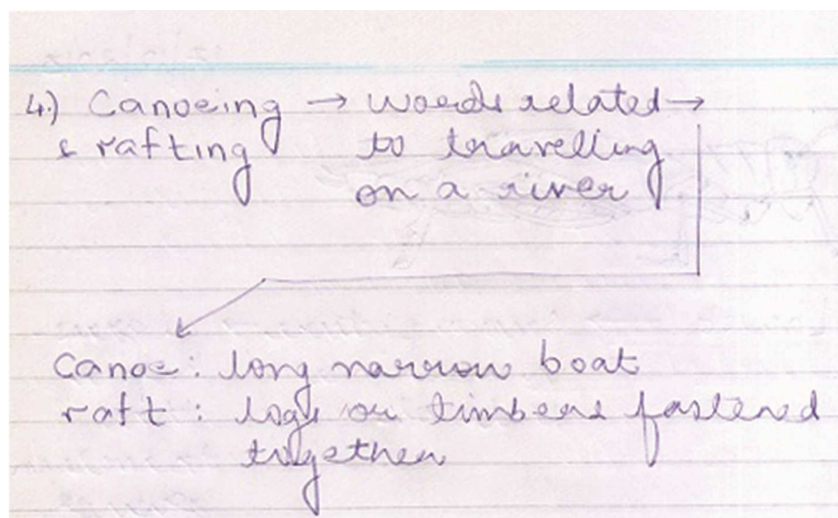 4.) Canoeing → words related →
& rafting to travelling
on a river
Canoe: long narrow boat
raft : logs or timbers fastened
together